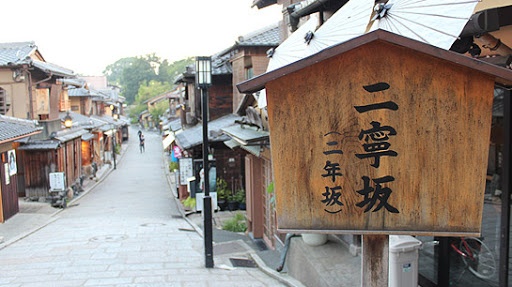 二寧坂
(二年坂)